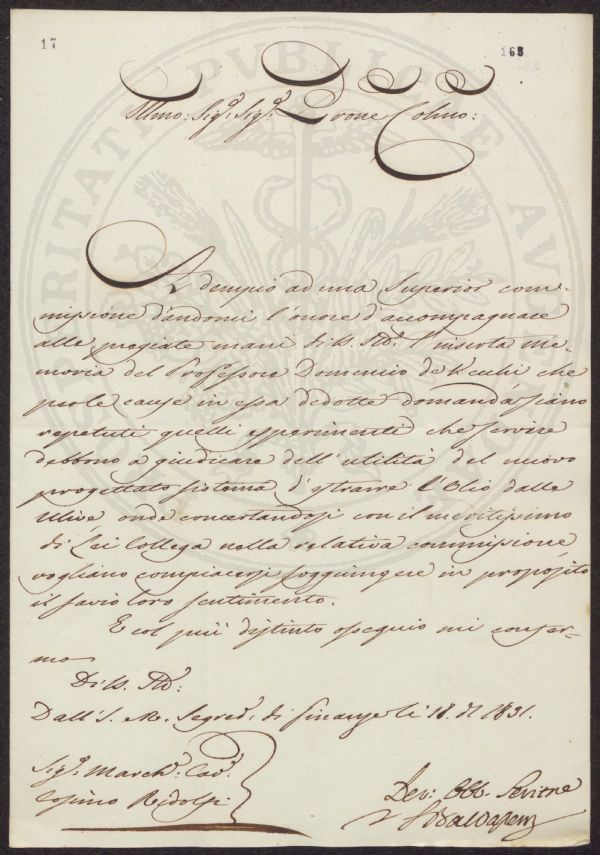 17
168
Illmo: Sigr: Sigr: Prone Colmo:
Adempio ad una Superior com-
missione dandomi l'onore d'accompagnare
alle pregiate mani di V. S. Illma. l'inserta Me-
moria del Professore Domenico de Vecchi che
per le cause in essa dedotte domanda siano
repetuti quelli esperimenti che servire
debbono a giudicare dell'utilità del nuovo
progettato sistema d'estrarre l'Olio dalle
Ulive onde concertandosi con il meritissimo
di Lei Collega nella relativa commissione
vogliano compiacersi soggiungere in proposito
il savio loro sentimento.
E col più distinto ossequio mi confer-
mo
Di V. S. Illma:
Dall'I. e R. Segreria di Finanze li 18. 1831.
Sigr. March: Cav:
Cosimo Ridolfi
Dev: Obb. Servitore